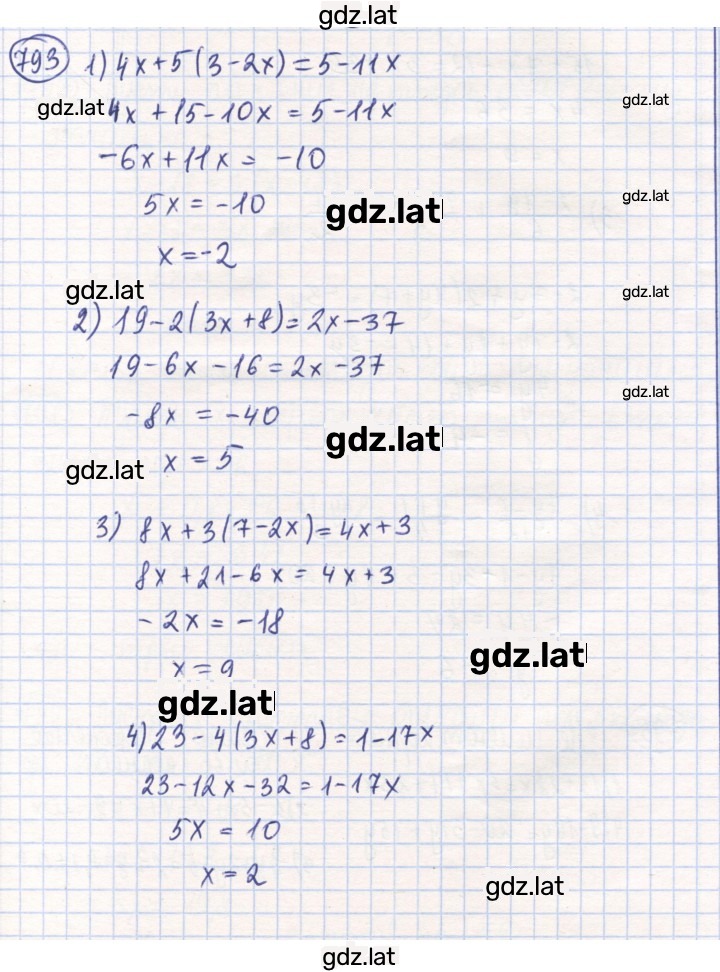 gdz.lat
793 1) 4x+5(3-2x)=5-11x
gdz.lat 4x+15-10x=5-11x gdz.lat
-6x+11x=-10
5x=-10 gdz.lat gdz.lat
x=-2
gdz.lat gdz.lat
2) 19-2(3x+8)=2x-37
19-6x-16=2x-37
gdz.lat
-8x=-40 gdz.lat
gdz.lat x=5
3) 8x+3(7-2x)=4x+3
8x+21-6x=4x+3
-2x=-18
x=9 gdz.lat
gdz.lat
4) 23-4(3x+8)=1-17x
23-12x-32=1-17x
5x=10
x=2 gdz.lat
gdz.lat